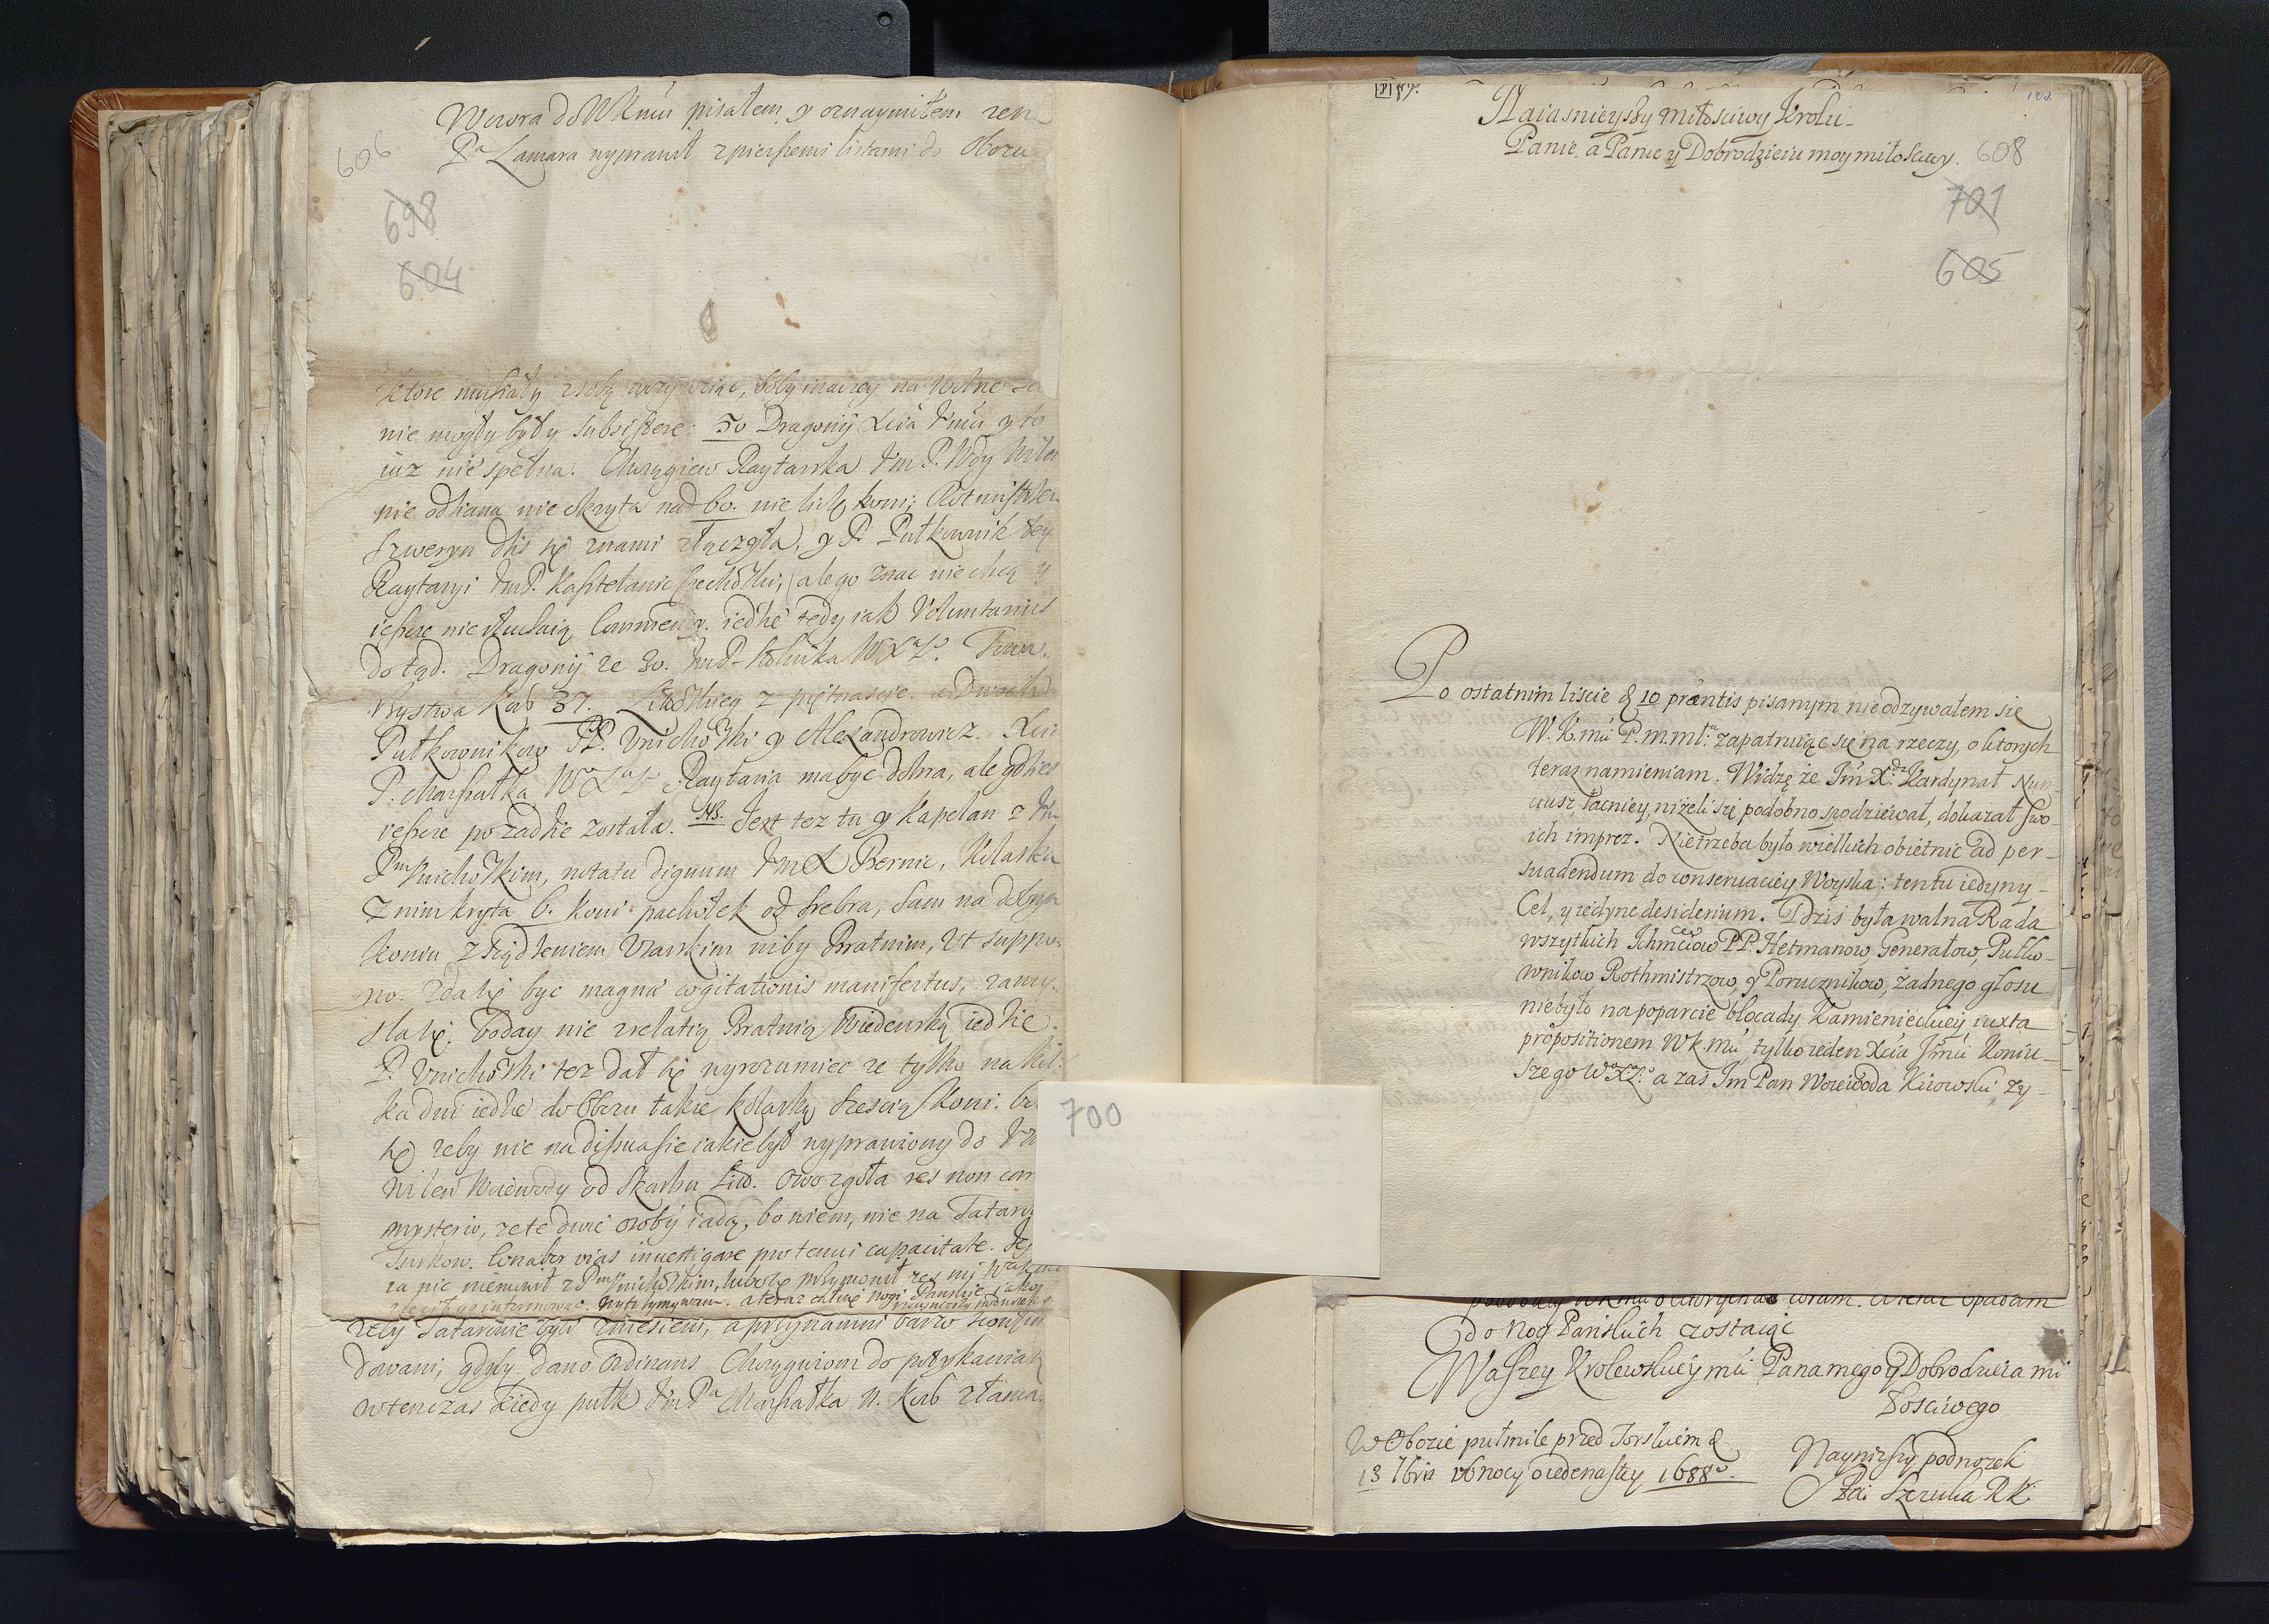 606
698
604
Wczora do WKmći pisałem y oznaymiłem zem
Pa Lamara wyprawił z pierszemi listami do Obozu
ktore musiały z sobą
nie mogły były subsistere: 50 Dragonij Xcia Jmći y to
iuz nie spełna. Chorągiew Raytarska Jm P. Wdy Wilen
nie odziana nie okryta nad 60. nie liczę koni; Rotmistrz
Szweryn dzis się znami złączyła, y P. Pułkownik tey
Raytaryi JmP. Kasztelanic (ale go znac nie chcą y
iescze nie słuchaią iedzie tedy iak Voluntarius
do tąd. Dragonij ze 30. JmP. Stolnika WXaLo. Towa-
rzystwa Kab 37. z piętnascie. Dwoch
Pułkownikow PP. Vnichowski y Alexandrowicz. Xcia
P. Marszałka WoXaLo Raytaria ma byc dobra, ale gdzies
iescze pozadzie została. NB. Jest tez tu y Kapelan z Jm
Pm Vnichowskim, notatu dignum Jm X Bernic, Kolaska
z nim kryta 6. koni pachołek od srebra, sam na dobrym
koniu z siądzeniem Vsarskim niby Bratnim, Vt suppo-
no. Zda się byc magna cogitationis manifestus, zamy-
sla się. boday nie z relatią Bratnią Wiedenską iedzie.
P. Vnichowski tez dał się wyrozumiec ze tylko na kil-
ka dni iedzie do Obozu takze kolaską szescią koni. bo
się zeby nie na disuasie iakie był wyprawiony do Jm
Wilen Woiewody od Skarbu Lit. Owo zgoła res non caret
mysterio, ze te dwie osoby iadą, bo wiem, nie na Tatarow
Turkow. Conabor vias inuestigare pro tenui capacitate.
za nic niemowił z Pm Vnichowskim, lubo się
a teraz
zeby Tatarowie byli zniesieni, a przynamni barzo
dowani, gdyby dano Ordinans Chorągwiom do potykania
wtenczas kiedy pułk JmPa Marszałka N. Kab złama-
700
187.
Naiasnieyszy Miłosciwy Krolu
Panie. a Panie y Dobrodzieiu moy miłosciwy.
608
701
605
Po ostatnim liscie d. 10 præntis pisanym nie odzywałem się
W. K. mći P. m. młu zapatruiąc się na rzeczy, o ktorych
teraz namieniam. Widzę że Jm Xdz Kardynał Nun-
ciusz, łacniey, niżeli się podobno spodziewał, dokazał swo-
ich imprez. Nietrzeba było wielkich obietnic ad per-
suadendum do conseruaciey Woyska: ten tu iedyny
Cel, y iedyne desiderium. Dzis była walna Rada
wszytkich Ichmciow PP. Hetmanow, Generałow, Pułko-
wnikow, Rothmistrzow, y Porucznikow, żadnego głosu
niebyło na poparcie blocady Kamienieckiey, iuxta
propositionem W k. mći, tylko ieden Xcia Jmći Koniu-
szego WoXaLo: a zas Jm Pan Woiewoda Kiiowski, zy-
o ktorych coram. A teraz upadam
do Nog Panskich zostaię
Waszey Krolewskiey mći Pana mego y Dobrodzieia mi
łosciwego
W Obozie pułmile przed Jorskiem d.
13 7bris w nocy o iedenastey 1688o.
Nayniższy podnozek
Szczuka RK.